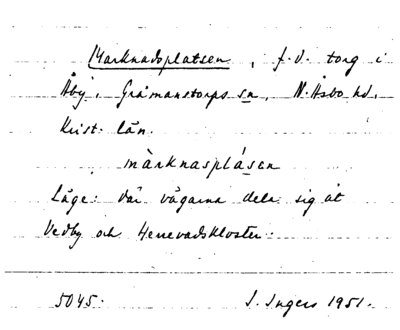 Marknadsplatsen, f.d. torg i
Åby, Gråmanstorps sn, N. Åsbo hd,
Krist. län.
màrknasplásen
Läge: där vägarna dela sig åt
Vedby och Herrevadskloster.
5045. I. Ingers 1951.